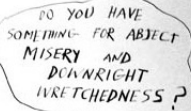 DO YOU HAVE
SOMETHING FOR ABJECT
MISERY AND
DOWNRIGHT
WRETCHEDNESS?